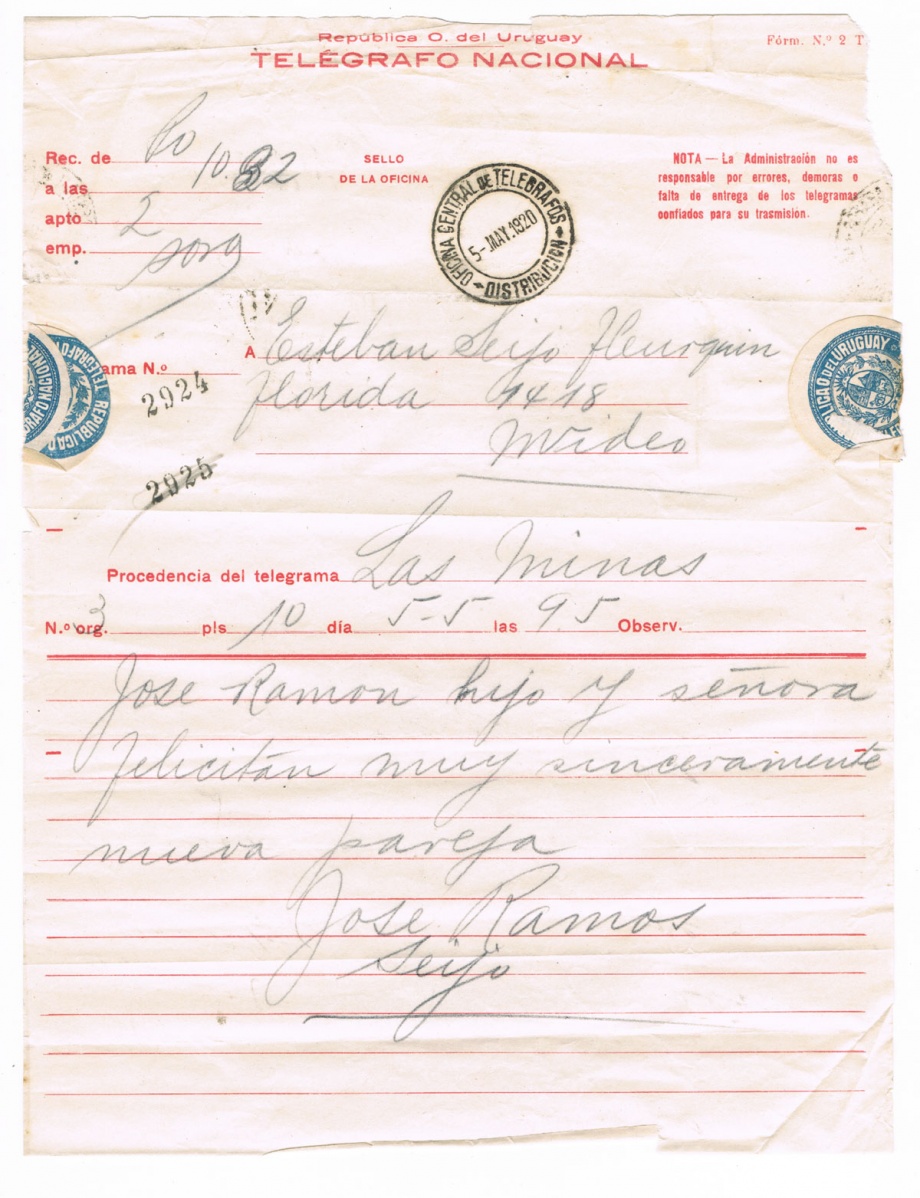 República O. del Uruguay
TELÉGRAFO NACIONAL
Fórm. N.º 2 T
Rec. de Ro
a las 10.32
apto 2
emp.
SELLO
DE LA OFICINA
OFICINA CENTRAL DE TELEGRAFOS
5-MAY.1920
DISTRIBUCION
NOTA — La Administración no es
responsable por errores, demoras o
falta de entrega de los telegramas
confiados para su trasmisión.
ama N.º 2924
2925
A Esteban Seijo Fleurquin
Florida 1418
Mvideo
RAFO NACIONAL
TELEGRAFO
REPUBLICA O
LICA O DEL URUGUAY
Procedencia del telegrama Las Minas
N.º org. 3 pls 10 día 5-5 las 9.5 Observ.
Jose Ramon hijo y señora
felicitan muy sinceramente
nueva pareja
Jose Ramos
Seijo